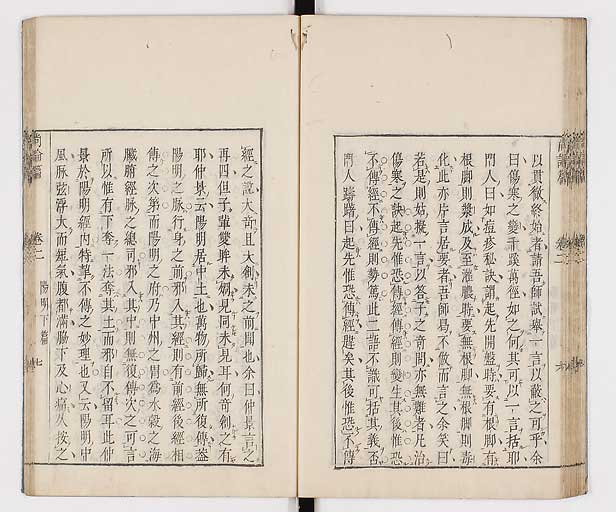 以貫徹終始者請吾師試舉一言以蔽之可乎余
曰傷寒之變千蹊萬徑如之何其可以一言括耶
門人曰如痘疹秘訣謂起先開盤時要有根脚有
根脚則漿成及至灌膿時要無根脚無根脚則毒
化此亦片言居要者吾師易不倣而言之余笑曰
若是則姑擬一言以答子之奇問亦無難者凡治
傷寒之訣起先惟恐傳經傳經則變生其後惟恐
不傳經不傳經則勢篤此二語不識可括其義否
門人躊躇曰起先惟恐傳經邇矣其後惟恐不傳
經之說大奇且大創未之前聞也余曰仲景言之
再四但子輩雙眸未炯見同未見耳何奇創之有
耶仲景云陽明居中土也萬物所歸無所復傳蓋
陽明之脉行身之前邪入其經則有前經後經相
傳之次第而陽明之府乃中州之胃爲水穀之海
臟腑經脉之總司邪入其中則無復傳次之可言
所以惟有下奪一法奪其土而邪自不留耳此仲
景於陽明經內特挈不傳之妙理也又云陽明中
風脉弦浮大而短氣腹都滿脇下及心痛久按之
尚論篇
卷二
陽明下篇
七